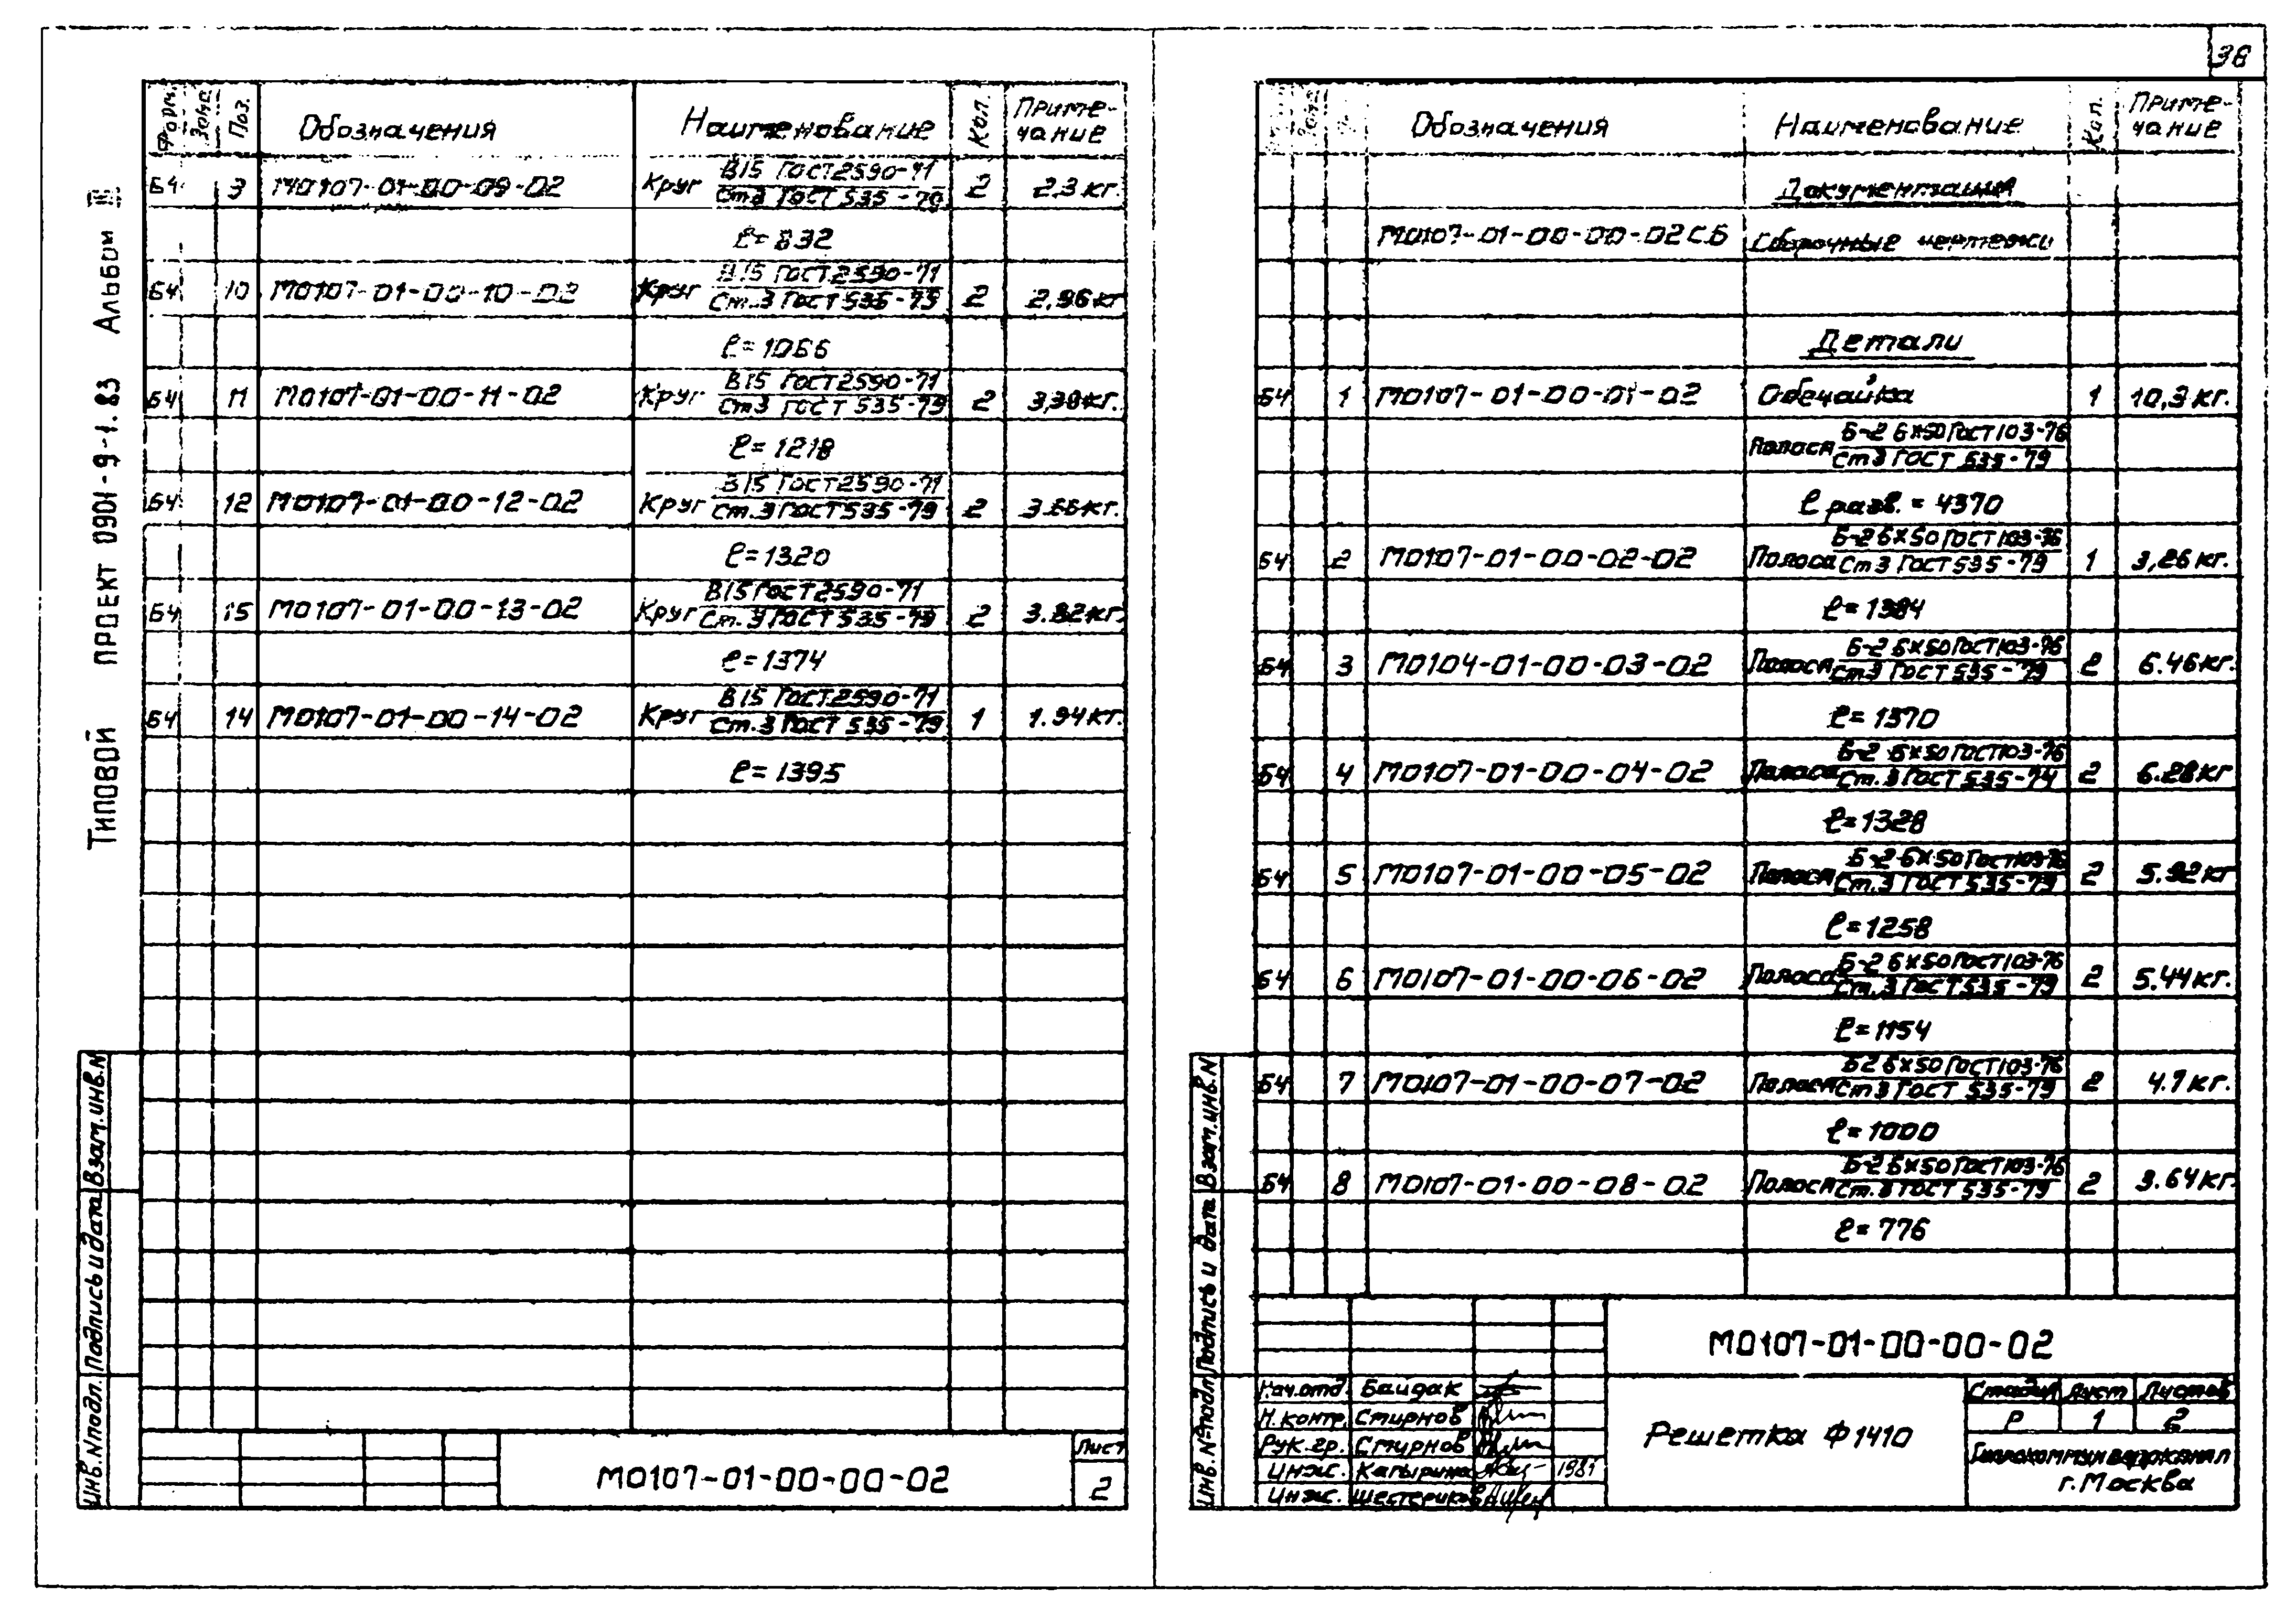 38
Типовой проект 0901-9-1.83 Альбом III
Форм. Зона Поз. Обозначения Наименование Кол. Приме-чание
БЧ 9 М0107-01-00-09-02 Круг В15 ГОСТ 2590-71 / Ст3 ГОСТ 535-79 2 2,3 кг.
ℓ=832
БЧ 10 М0107-01-00-10-02 Круг В15 ГОСТ 2590-71 / Ст.3 ГОСТ 535-79 2 2,96 кг
ℓ=1066
БЧ 11 М0107-01-00-11-02 Круг В15 ГОСТ 2590-71 / Ст3 ГОСТ 535-79 2 3,38 кг.
ℓ=1218
БЧ 12 М0107-01-00-12-02 Круг В15 ГОСТ 2590-71 / Ст.3 ГОСТ 535-79 2 3.66 кг.
ℓ=1320
БЧ 13 М0107-01-00-13-02 Круг В15 ГОСТ 2590-71 / Ст.3 ГОСТ 535-79 2 3.82 кг.
ℓ=1374
БЧ 14 М0107-01-00-14-02 Круг В15 ГОСТ 2590-71 / Ст.3 ГОСТ 535-79 1 1.94 кг.
ℓ=1395
Инв.N подл. Подпись и дата Взам.инв.N
М0107-01-00-00-02
Лист
2
Обозначения Наименование Кол. Приме-чание
Документация
М0107-01-00-00-02СБ Сборочные чертежи
Детали
БЧ 1 М0107-01-00-01-02 Обечайка 1 10,3 кг.
Полоса Б-2 6×50 ГОСТ 103-76 / Ст3 ГОСТ 535-79
ℓ разв. = 4370
БЧ 2 М0107-01-00-02-02 Полоса Б-2 6×50 ГОСТ 103-76 / Ст3 ГОСТ 535-79 1 3,26 кг.
ℓ=1384
БЧ 3 М0104-01-00-03-02 Полоса Б-2 6×50 ГОСТ 103-76 / Ст3 ГОСТ 535-79 2 6.46 кг.
ℓ=1370
БЧ 4 М0107-01-00-04-02 Полоса Б-2 6×50 ГОСТ 103-76 / Ст.3 ГОСТ 535-74 2 6.28 кг
ℓ=1328
БЧ 5 М0107-01-00-05-02 Полоса Б-2 6×50 ГОСТ 103-76 / Ст.3 ГОСТ 535-79 2 5.92 кг
ℓ=1258
БЧ 6 М0107-01-00-06-02 Полоса Б-2 6×50 ГОСТ 103-76 / Ст.3 ГОСТ 535-79 2 5.44 кг.
ℓ=1154
БЧ 7 М0107-01-00-07-02 Полоса Б2 6×50 ГОСТ 103-76 / Ст3 ГОСТ 535-79 2 4.7 кг.
ℓ=1000
БЧ 8 М0107-01-00-08-02 Полоса Б-2 6×50 ГОСТ 103-76 / Ст.3 ГОСТ 535-79 2 3.64 кг.
ℓ=776
Инв.№ подл Подпись и дата Взам.инв.N
М0107-01-00-00-02
Нач.отд. Байдак
Н.контр. Смирнов
Рук.гр. Смирнов
Инж. Капырина
Инж. Шестериков
Решетка Ф1410
Стадия Лист Листов
Р 1 2
Гипрокоммунводоканал
г.Москва